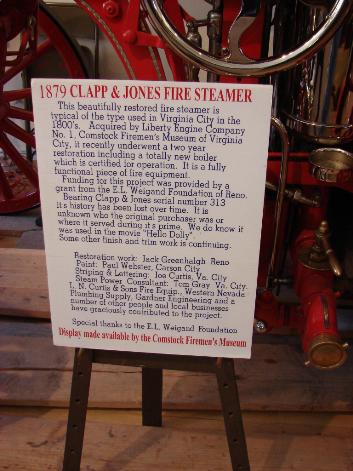 1879 CLAPP & JONES FIRE STEAMER
This beautifully restored fire steamer is
typical of the type used in Virginia City in the
1800's. Acquired by Liberty Engine Company
No. 1, Comstock Firemen's Museum of Virginia
City, it recently underwent a two year
restoration including a totally new boiler
which is certified for operation. It is a fully
functional piece of fire equipment.
Funding for this project was provided by a
grant from the E.L. Weigand Foundation of Reno.
Bearing Clapp & Jones serial number 313
It's history has been lost over time. It is
unknown who the original purchaser was or
where it served during it's prime. We do know it
was used in the movie "Hello Dolly".
Some other finish and trim work is continuing.
Restoration work: Jack Greenhalgh Reno
Paint: Paul Webster, Carson City
Striping & Lettering: Joe Curtis, Va. City
Steam Power Consultant: Tom Gray Va. City.
L. N. Curtis & Sons Fire Equip., Western Nevada
Plumbing Supply, Gardner Engineering and a
number of other people and local businesses
have graciously contributed to the project.
Special thanks to the E.L. Weigand Foundation
Display made available by the Comstock Firemen's Museum